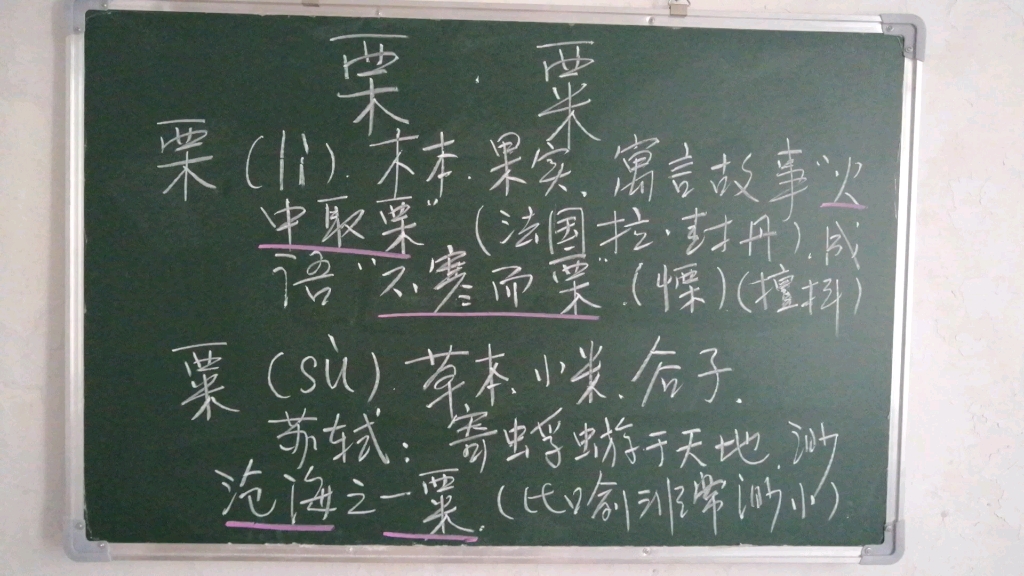 栗·粟
栗(lì).木本.果实.寓言故事"火
中取栗"(法国拉·封丹).成
语"不寒而栗".(慄)(擅抖)
粟(sù)草本.小米.谷子.
苏轼:寄蜉蝣于天地,渺
沧海之一粟.(比喻非常渺小)